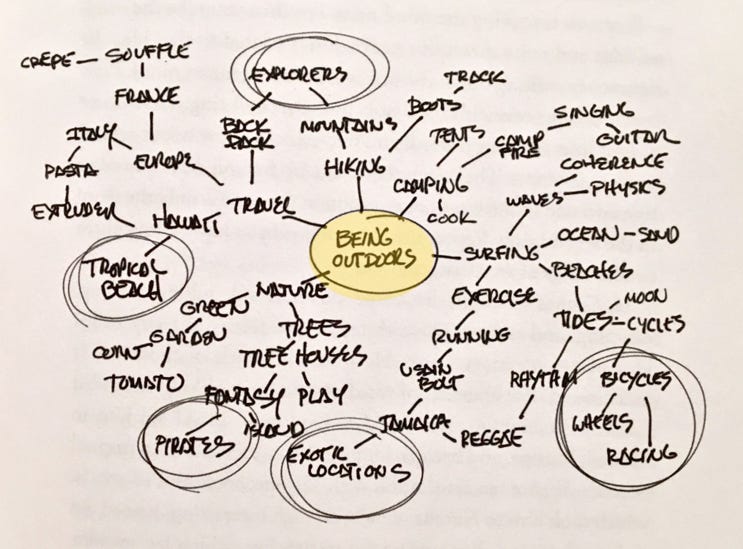 CRÊPE
SOUFFLÉ
FRANCE
ITALY
PASTA
EXTRUDER
EUROPE
HAWAII
TRAVEL
BACK
PACK
EXPLORERS
MOUNTAINS
HIKING
TRACK
BOOTS
TENTS
CAMPING
COOK
CAMP
FIRE
SINGING
GUITAR
COHERENCE
PHYSICS
WAVES
BEING
OUTDOORS
SURFING
OCEAN
SAND
BEACHES
TROPICAL
BEACH
NATURE
GREEN
GARDEN
CORN
TOMATO
TREES
TREE HOUSES
FANTASY
PLAY
PIRATES
ISLAND
EXERCISE
RUNNING
USAIN
BOLT
JAMAICA
REGGAE
RHYTHM
EXOTIC
LOCATIONS
TIDES
MOON
CYCLES
BICYCLES
WHEELS
RACING